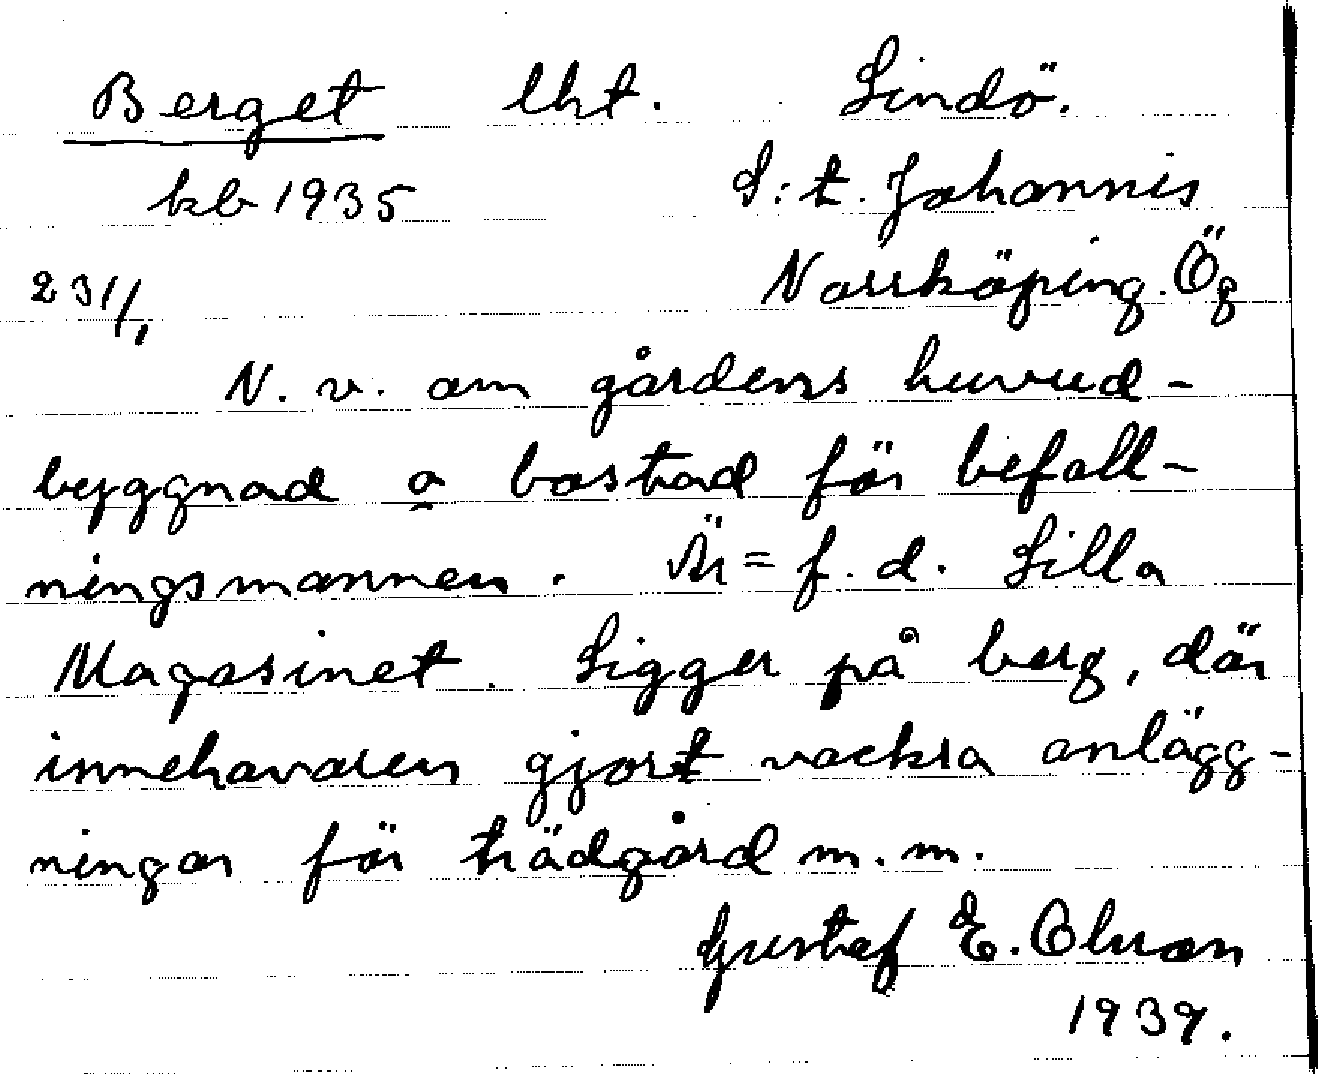 Berget lht. Lindö.
kb 1935 S:t. Johannis
231/1 Norrköping. Ög
N. v. om gårdens huvud-
byggnad o bostad för befall-
ningsmannen. Är = f. d. Lilla
Magasinet. Ligger på berg, där
innehavaren gjort vackra anlägg-
ningar för trädgård m. m.
Gustaf E. Olsson
1939.